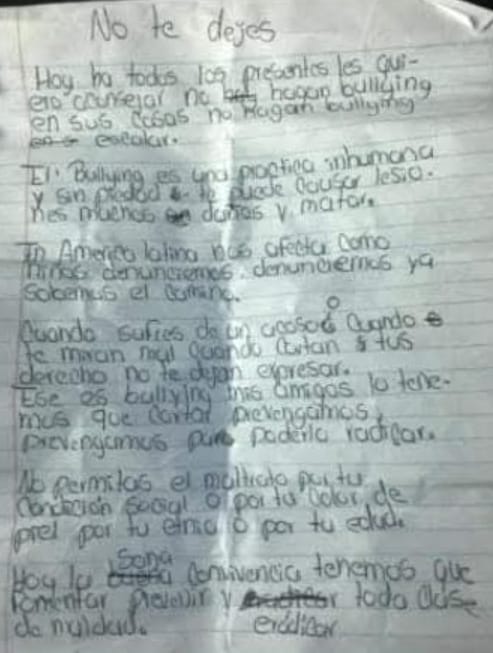 No te dejes
Hoy ha todos los presentes les qui-
ero consejar no hagan bullying
en sus casas no hagan bullying
escolar.
El Bullying es una practica inhumana
y sin piedad te puede causar lesio-
nes muchos daños y matar.
En America latina nos afecta como
niños denunciemos denunciemos ya
sabemos el camino.
Cuando sufres de un acoso o cuando
te miran mal cuando cortan tus
derecho no te dejan expresar.
Ese es bullying mis amigos lo tene-
mos que cortar prevengamos,
prevengamos para poderlo radicar.
No permitas el maltrato por tu
condición social o por tu color de
piel por tu etnia o por tu edad.
Hoy la sana convivencia tenemos que
fomentar prevenir y erradicar toda clase
de maldad.